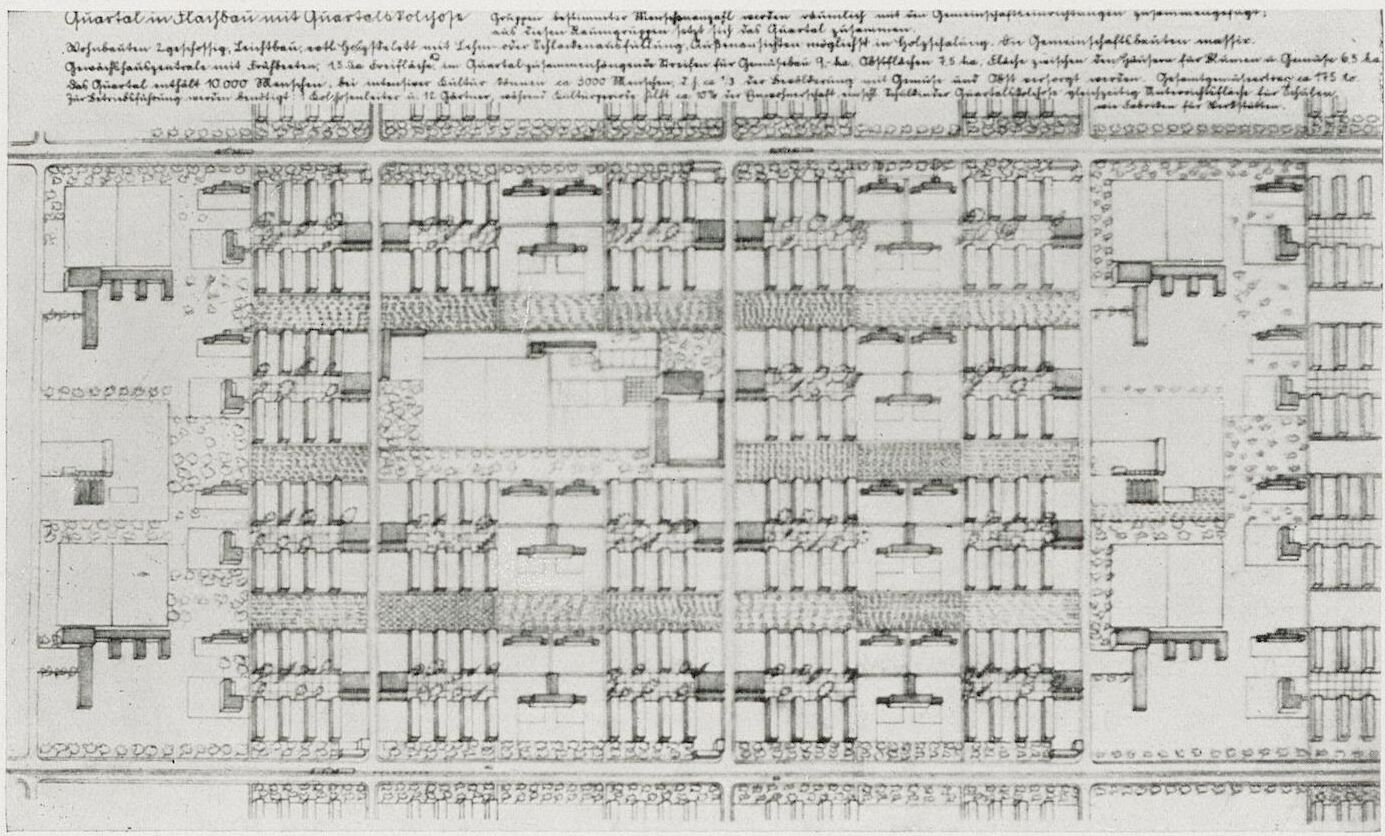 Quartal in Flachbau mit Quartalskolchose
Gruppen bestimmter Menschenanzahl werden räumlich mit den Gemeinschaftseinrichtungen zusammengefügt;
aus diesen Raumgruppen setzt sich das Quartal zusammen.
Wohnbauten 2geschossig, Leichtbau, evtl. Holzskelett mit Lehm oder Schlackenausfüllung, Außenansichten möglichst in Holzschalung. Die Gemeinschaftsbauten massiv.
Gewächshauszentrale mit Frühbeeten, 1.5 ha Freifläche, im Quartal zusammenhängende Streifen für Gemüsebau 9 ha, Obstflächen 7.5 ha, Fläche zwischen den Häusern für Blumen u Gemüse 6.5 ha
Das Quartal enthält 10.000 Menschen, bei intensiver Kultur können ca 3000 Menschen, d.h. ca ⅓ der Bevölkerung mit Gemüse und Obst versorgt werden. Gesamtgemüseertrag ca 175 to.
Zur Betriebsführung werden benötigt: 1 Kolchosenleiter u. 12 Gärtner, während Kulturperiode hilft ca 10% der Einwohnerschaft, einschl. Schulkinder Quartalskolchose gleichzeitig Unterrichtsfläche für Schulen,
wie Fabriken für Werkstätten.